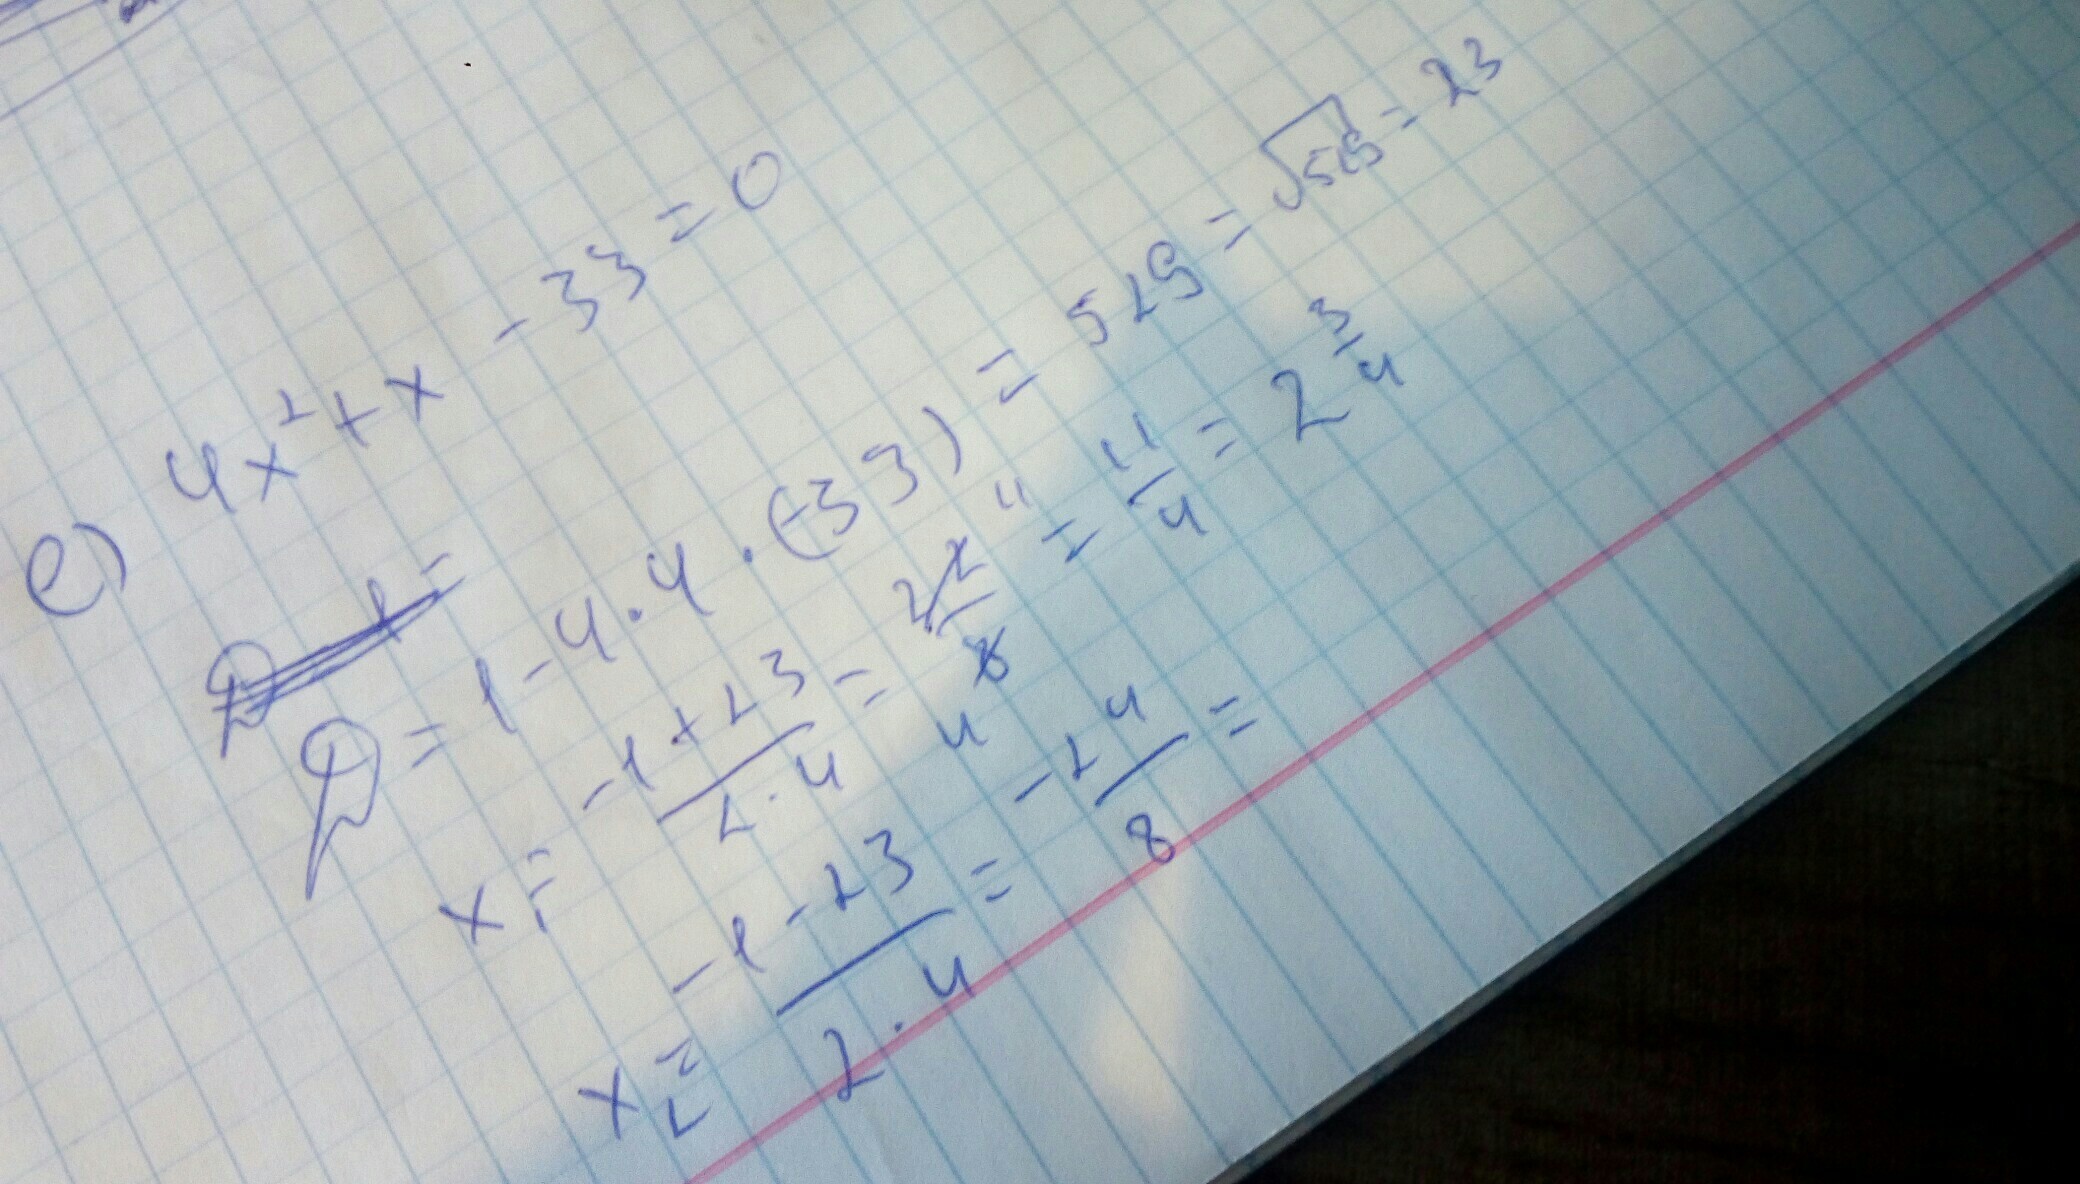 е) 4x² + x - 33 = 0
D = 1 - 4 · 4 · (-33) = 529 = √529 = 23
x₁ = (-1 + 23)/(2 · 4) = 22/8 = 11/4 = 2 3/4
x₂ = (-1 - 23)/(2 · 4) = -24/8 =